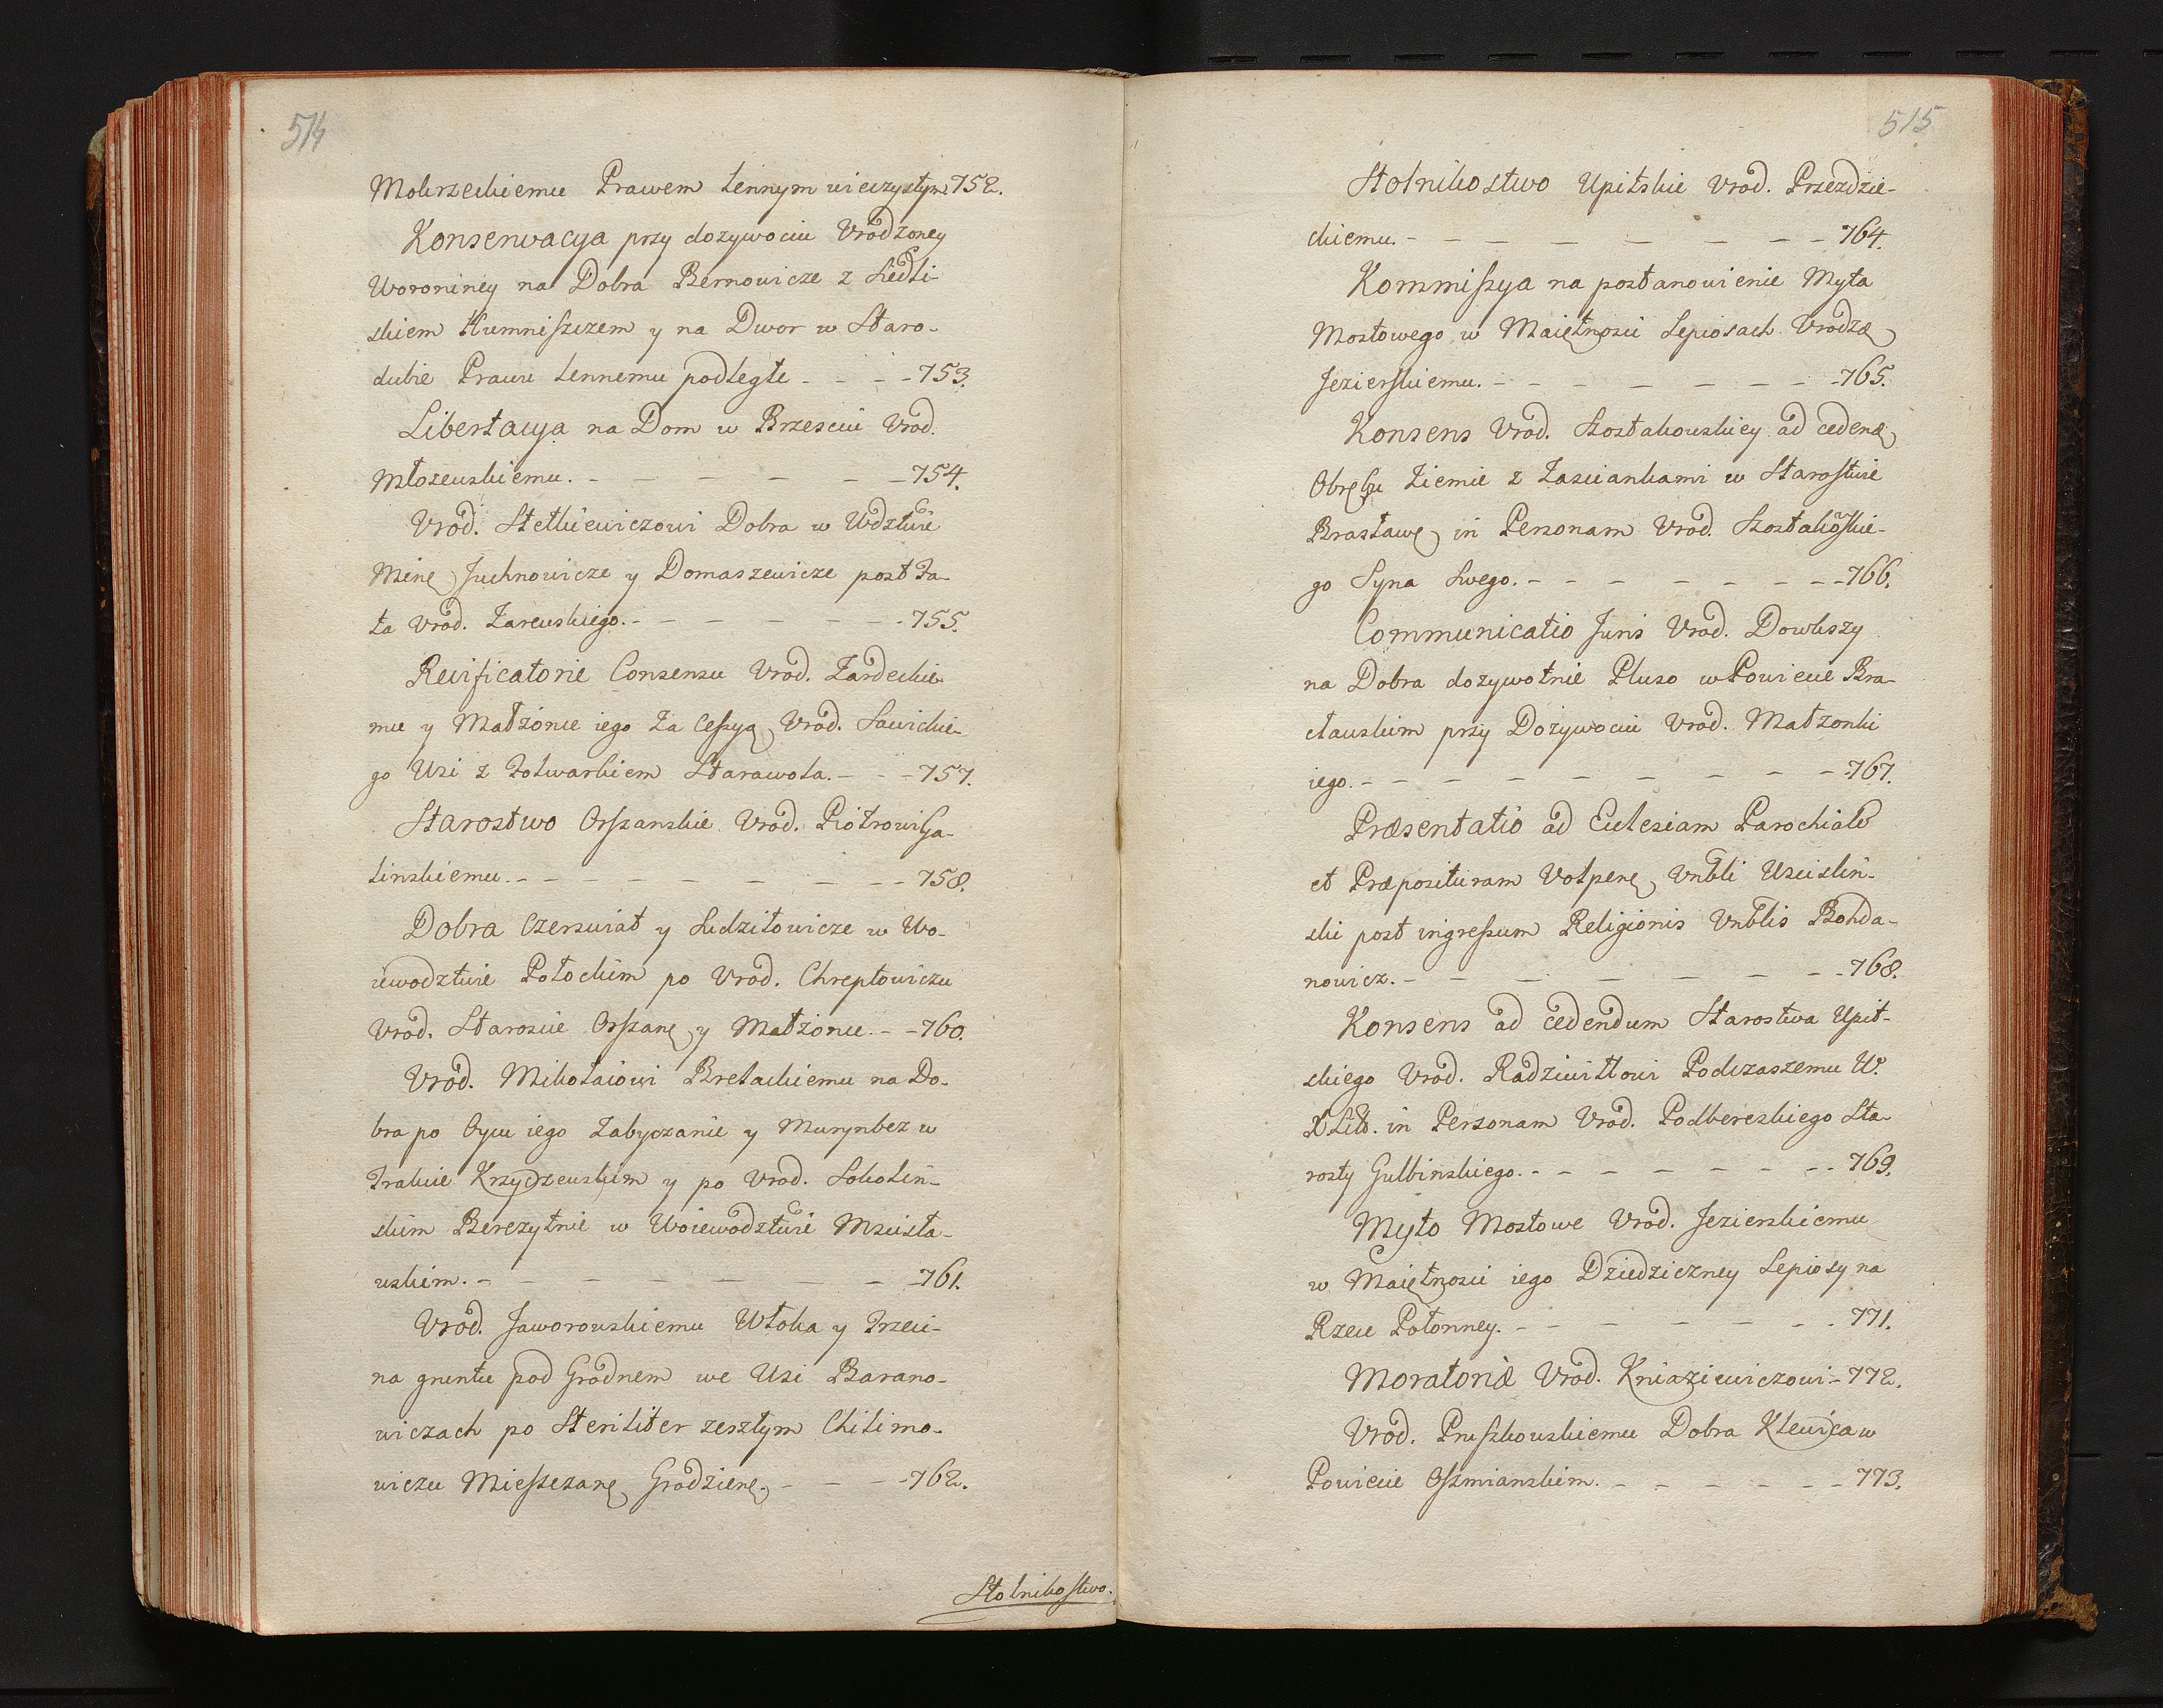 514
Mokrzeckiemu Prawem Lennym wieczystym 752.
Konserwacya przy dozywociu Vrodzoney
Woroniney na Dobra Bernowicze z Siedli-
skiem Humniszczem y na Dwor w Staro-
dubie Prawu Lennemu podległe - - - - 753.
Libertacya na Dom w Brzesciu Vrod.
Młozewskiemu. - - - - - - 754.
Vrod. Stetkiewiczowi Dobra w Wdztwie
Minę Juchnowicze y Domaszewicze post Fa-
ta Vrod. Zarewskiego. - - - - - - 755.
Reificatorie Consensu Vrod. Zardeckie-
mu y Małżonce iego za Cessyą Vrod. Sawickie-
go Wsi z Folwarkiem Starawola. - - - 757.
Starostwo Orszanskie Vrod. Piotrowi Ga-
linskiemu. - - - - - - - - 758.
Dobra Czerswiat y Sudziłowicze w Wo-
iewodztwie Połockim po Vrod. Chreptowiczu
Vrod. Staroscie Orszanę y Małżonce. - - 760.
Vrod. Mikołaiowi Brełackiemu na Do-
bra po Oycu iego Zabyczanie y Murynbez w
Trakcie Krzyczewskim y po Vrod. Sokolin-
skim Berezytnie w Woiewodztwie Mscisła-
wskim. - - - - - - - - 761.
Vrod. Jaworowskiemu Włoka y Trzeci-
na gruntu pod Grodnem we Wsi Barano-
wiczach po Steriliter zeszłym Chilimo-
wiczu Mieszczanę Grodzienę. - - - - 762.
Stolnikostwo.
515
Stolnikostwo Upitskie Vrod. Przezdzie-
ckiemu. - - - - - - - - 764.
Kommissya na postanowienie Myta
Mostowego w Maiętnosci Lepiosach Vrodzę
Jezierskiemu. - - - - - - - - 765.
Konsens Vrod. Szostakowskiey ad cedenę
Obrębu Ziemie z Zasciankami w Starostwie
Brasławę in Personam Vrod. Szostakowskie-
go Syna Swego. - - - - - - - - 766.
Communicatio Juris Vrod. Dowkszy
na Dobra dozywotnie Pluso w Powiecie Bra-
cławskim przy Dożywociu Vrod. Małzonki
iego. - - - - - - - - - 767.
Præsentatio ad Eclesiam Parochialē
et Præposituram Wołpenę Vnbli Uscislin-
ski post ingressum Religionis Vnblis Bohda-
nowicz. - - - - - - - - 768.
Konsens ad cedendum Starostwa Upit-
skiego Vrod. Radziwiłłowi Podczaszemu W.
X Litt. in Personam Vrod. Podbereskiego Sta-
rosty Gulbinskiego. - - - - - - - 769.
Myto Mostowe Vrod. Jezierskiemu
w Maiętnosci iego Dziedziczney Lepiosy na
Rzece Połonney. - - - - - - - 771.
Moratoriæ Vrod. Kniaziewiczowi - 772.
Vrod. Pruszkowskiemu Dobra Klewica w
Powiecie Oszmianskim. - - - - - - 773.